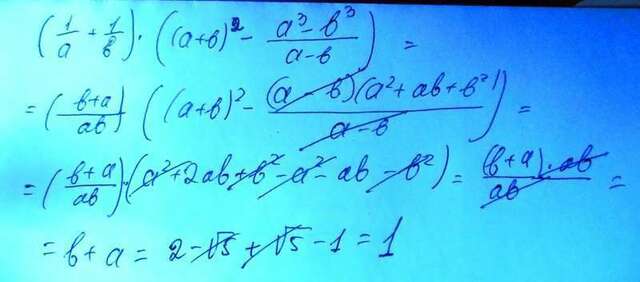 (1/a + 1/b) · ((a+b)² - (a³-b³)/(a-b)) =
= ((b+a)/ab) ((a+b)² - (a-b)(a²+ab+b²)/(a-b)) =
= ((b+a)/ab) · (a²+2ab+b²-a²-ab-b²) = (b+a)·ab/ab =
= b+a = 2-√5+√5-1 = 1